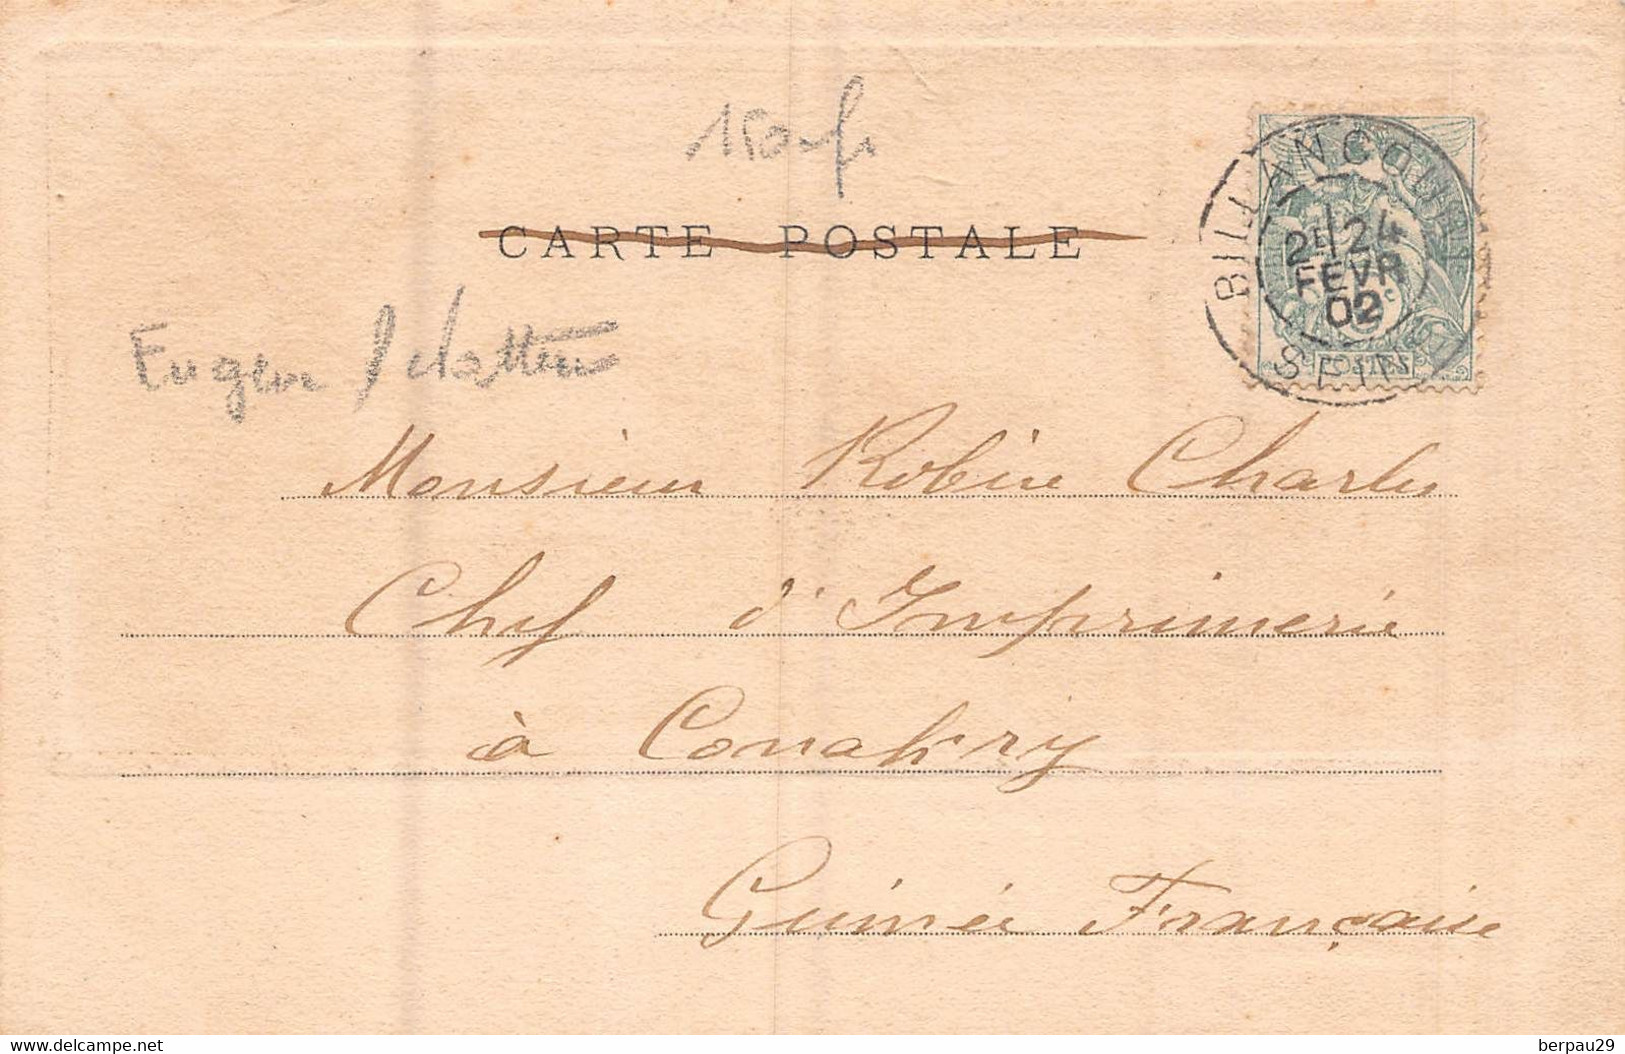 150 f
CARTE POSTALE
BILLANCOURT
2E 24
FEVR
02
SEINE
POSTES
Eugen
Monsieur Robin Charles
Chef d'Imprimerie
à Conakry
Guinée Française
delcampe.net
berpau29